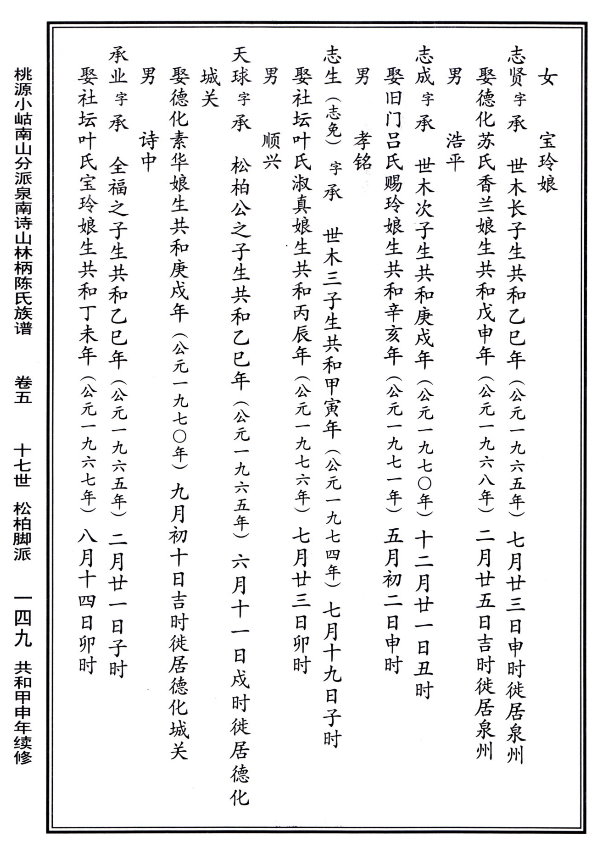 女　宝玲娘
志贤字承　世木长子生共和乙巳年（公元一九六五年）七月廿三日申时徙居泉州
娶德化苏氏香兰娘生共和戊申年（公元一九六八年）二月廿五日吉时徙居泉州
男　浩平
志成字承　世木次子生共和庚戌年（公元一九七〇年）十二月廿一日丑时
娶旧门吕氏赐玲娘生共和辛亥年（公元一九七一年）五月初二日申时
男　孝铭
志生（志兔）字承　世木三子生共和甲寅年（公元一九七四年）七月十九日子时
娶社坛叶氏淑真娘生共和丙辰年（公元一九七六年）七月廿三日卯时
男　顺兴
天球字承　松柏公之子生共和乙巳年（公元一九六五年）六月十一日戌时徙居德化
城关
娶德化素华娘生共和庚戌年（公元一九七〇年）九月初十日吉时徙居德化城关
男　诗中
承业字承　全福之子生共和乙巳年（公元一九六五年）二月廿一日子时
娶社坛叶氏宝玲娘生共和丁未年（公元一九六七年）八月十四日卯时
桃源小岵南山分派泉南诗山林柄陈氏族谱　卷五　十七世　松柏脚派　一四九　共和甲申年续修